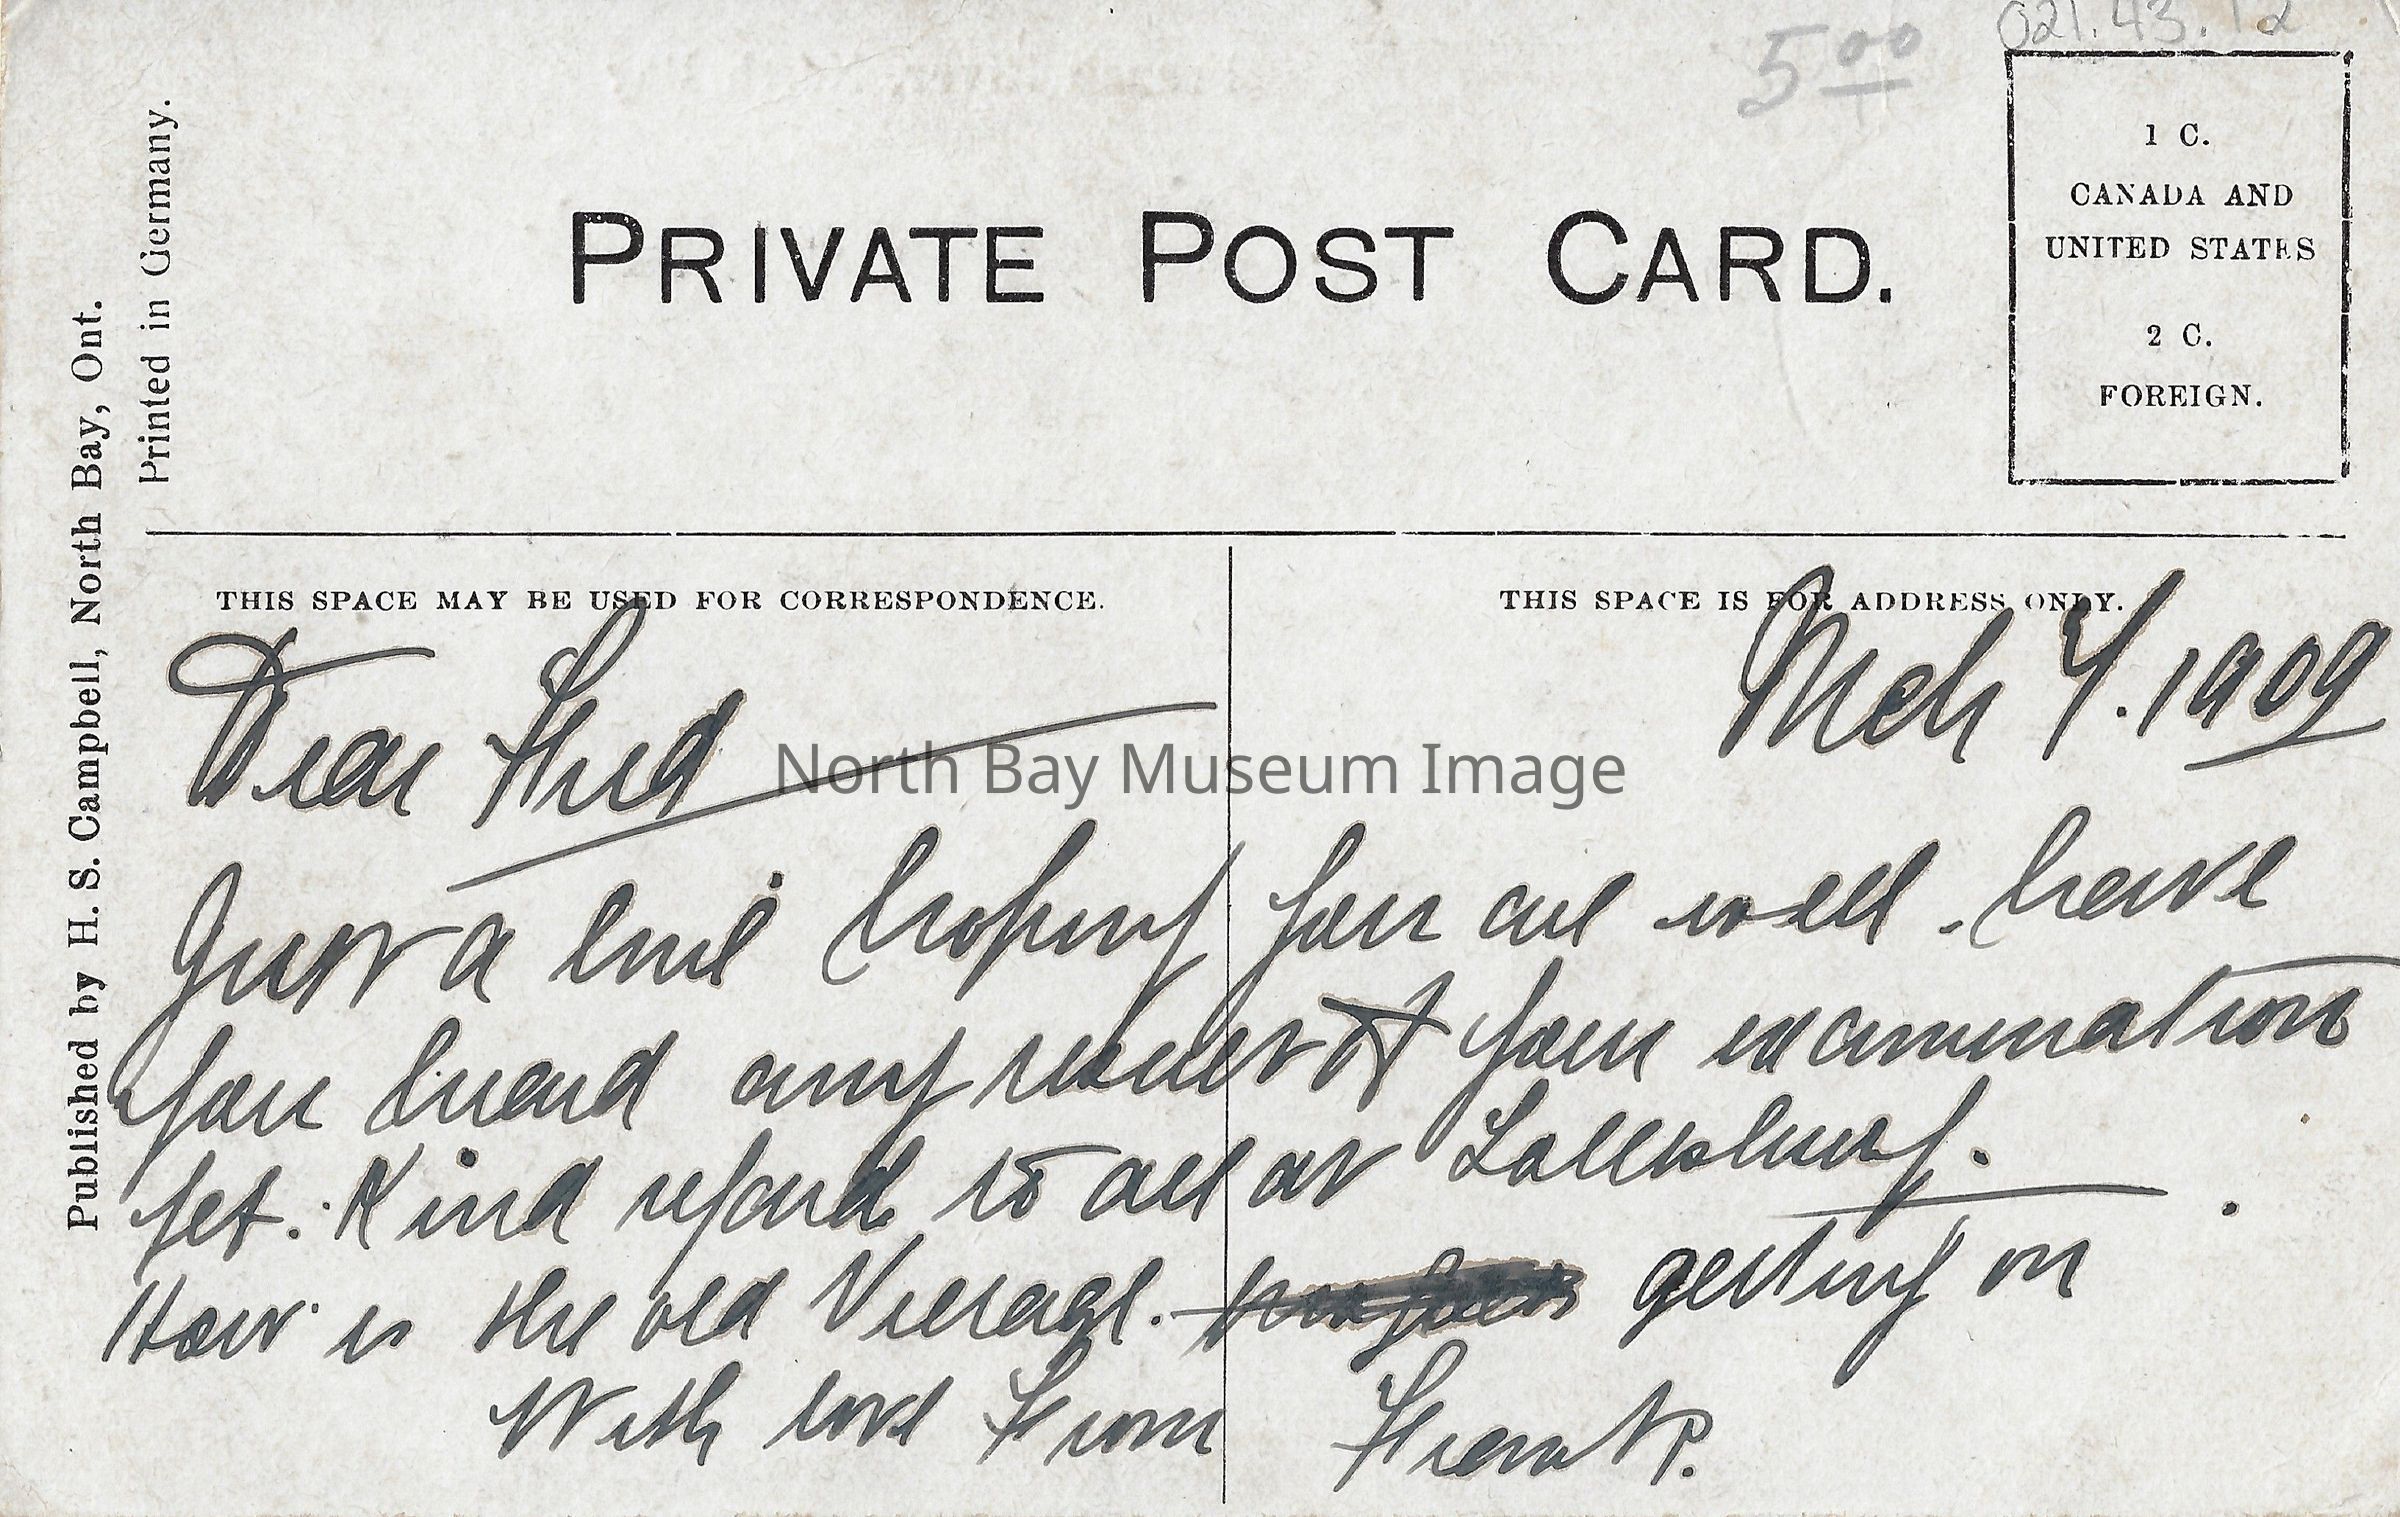 5 00
021.43.12
1 C.
CANADA AND
UNITED STATES
2 C.
FOREIGN.
PRIVATE POST CARD.
Published by H. S. Campbell, North Bay, Ont.
Printed in Germany.
THIS SPACE MAY BE USED FOR CORRESPONDENCE.
THIS SPACE IS FOR ADDRESS ONLY.
Mch 7. 1909
Dear Fred
North Bay Museum Image
Just a line hoping you are well. have
you heard any result of your examination
yet. Kind regard to all at
How is the old Village. getting on
With love From Frank P.